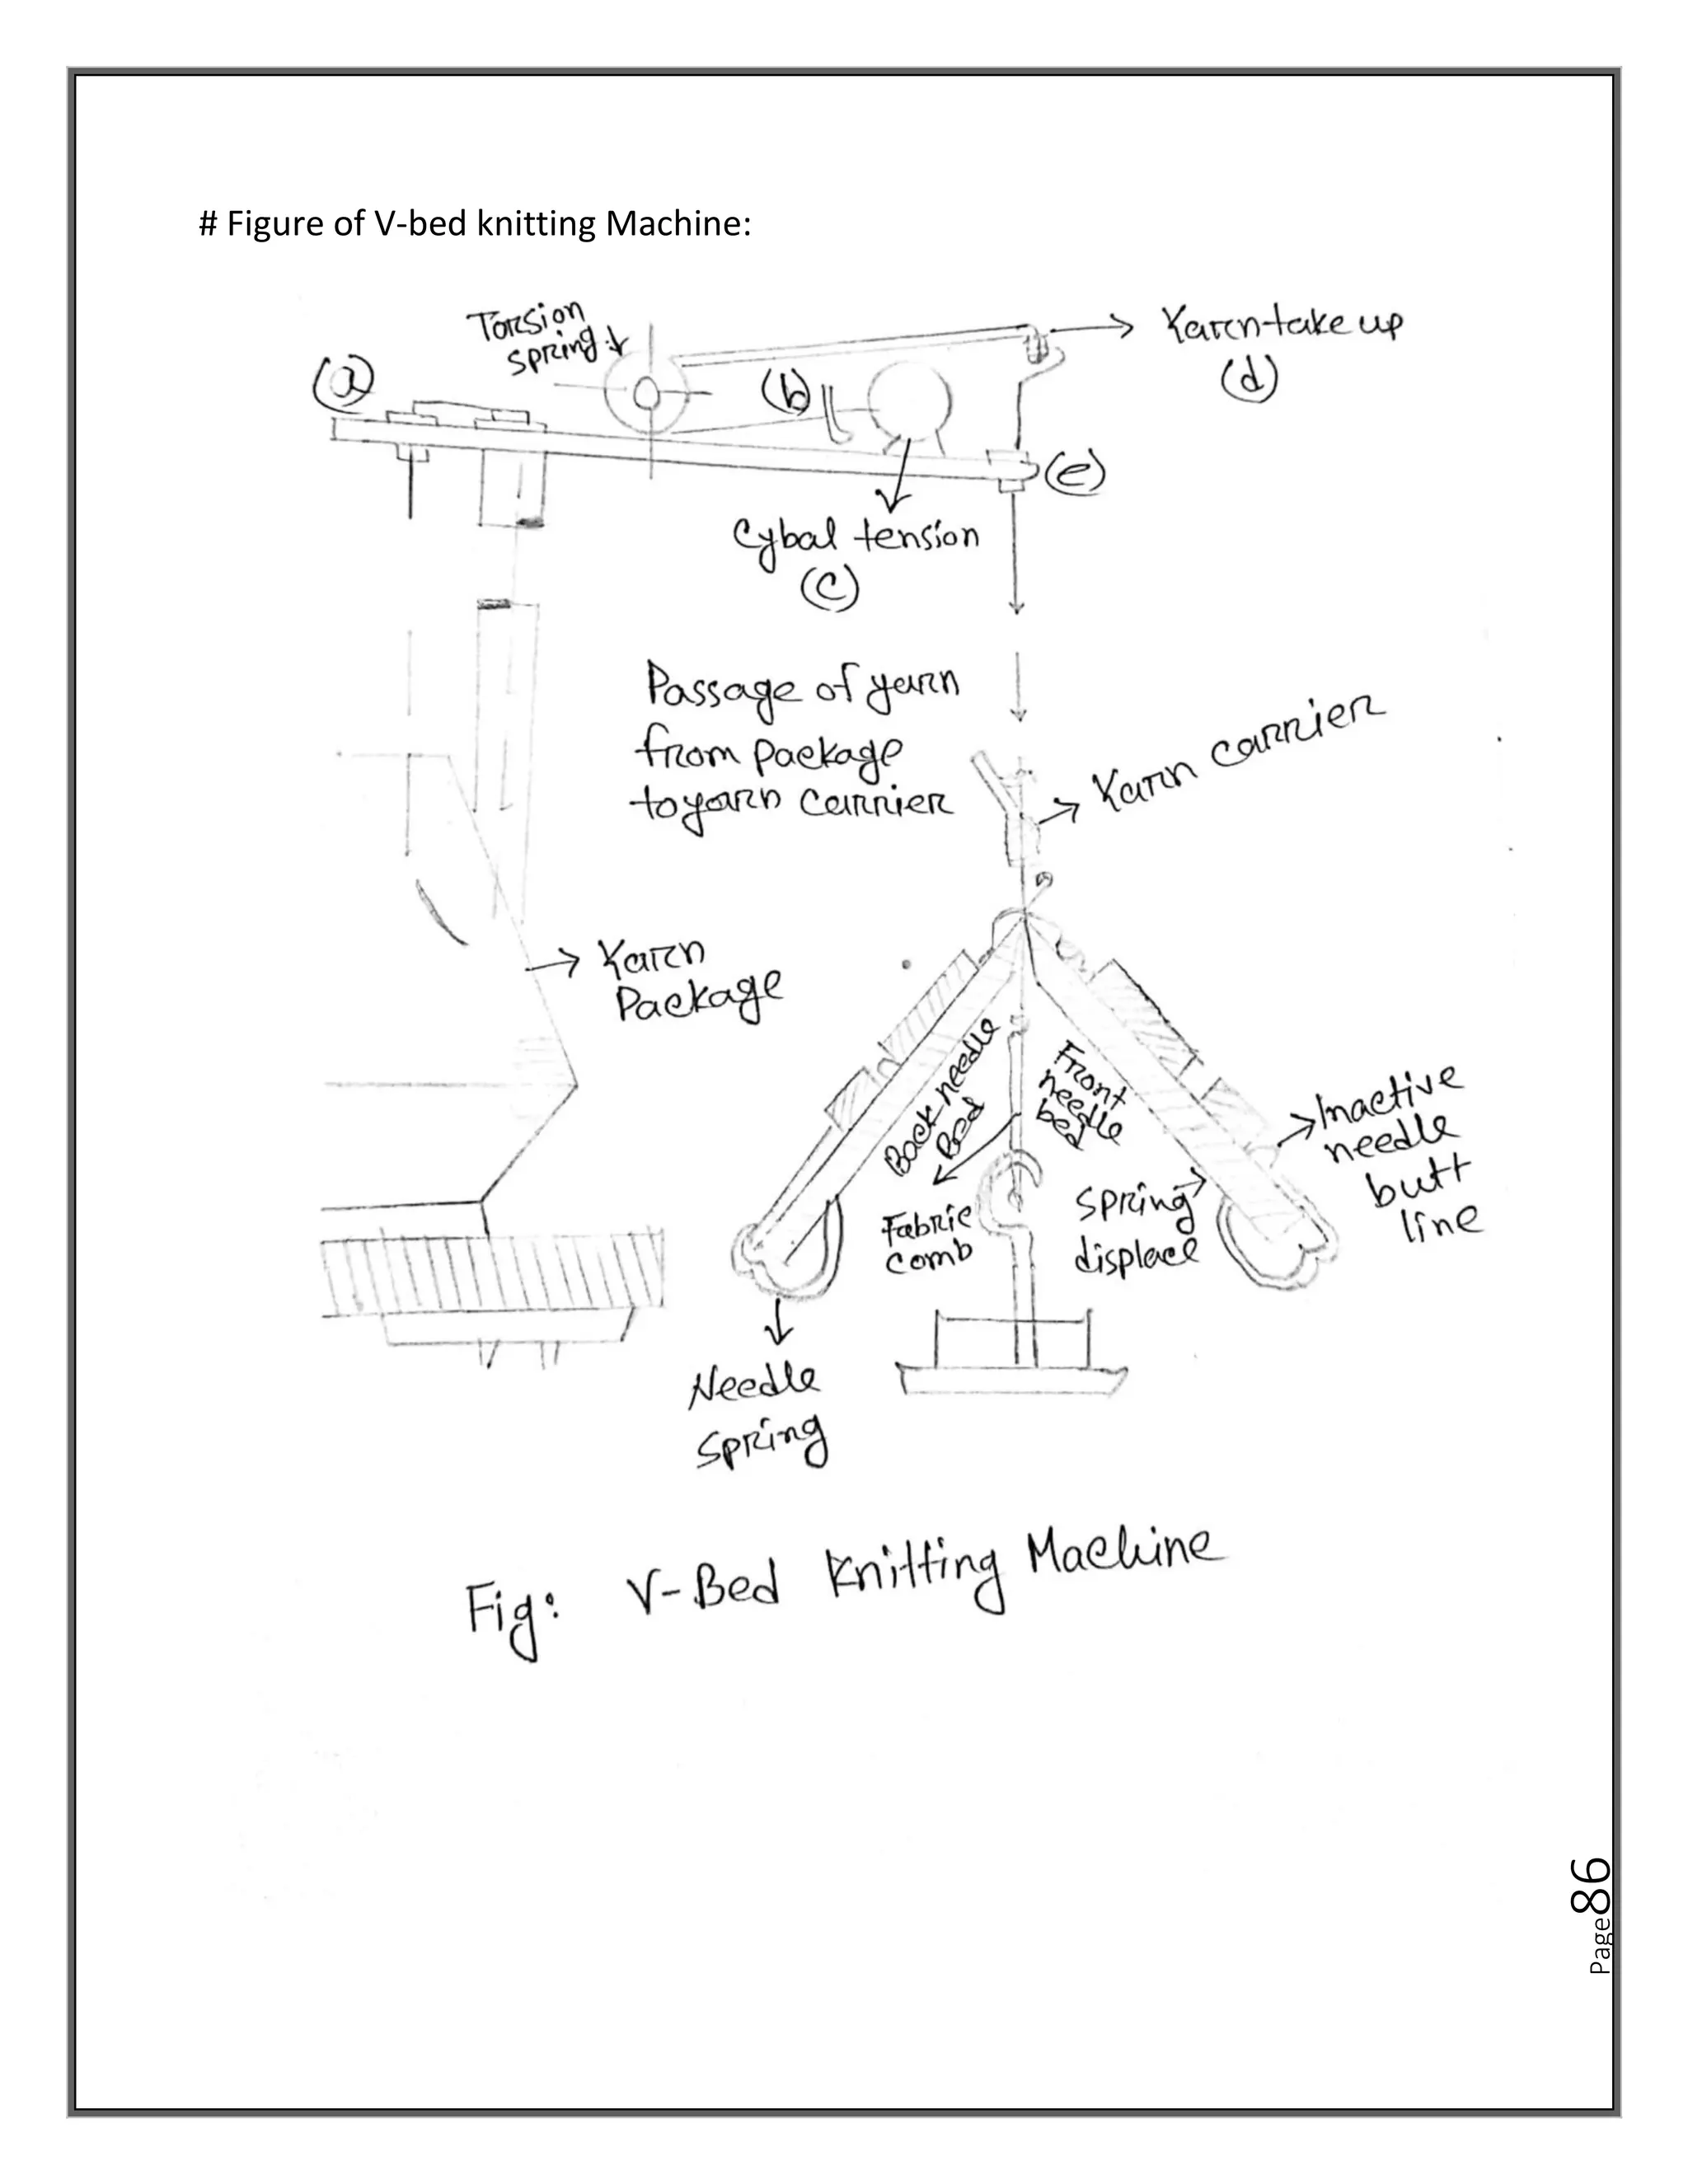 # Figure of V-bed knitting Machine:
Torsion
spring
Yarn take up
(a)
(b)
(d)
(e)
Cybal tension
(c)
Passage of yarn
from package
to yarn carrier
Yarn carrier
Yarn
Package
Back needle
Bed
Front
needle
bed
Inactive
needle
butt
line
Fabric
comb
Spring
displace
Needle
spring
Fig: V-Bed Knitting Machine
Page 86